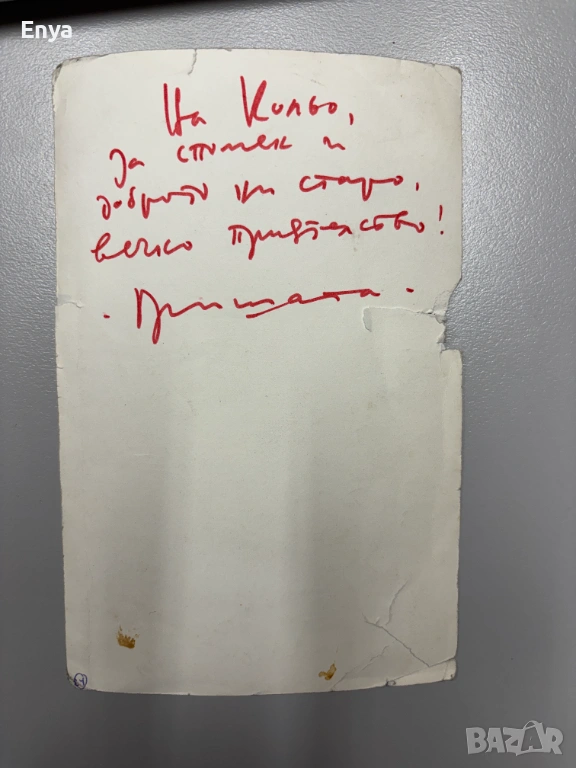 Enya
На Кольо,
За спомен и
доброто ни старо,
вечно приятелство!
BAZAR